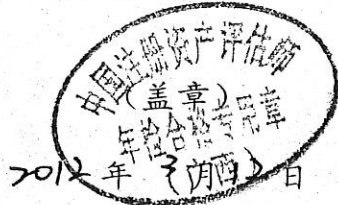 中国注册资产评估师
(盖章)
年检合格专用章
2012年3月 日